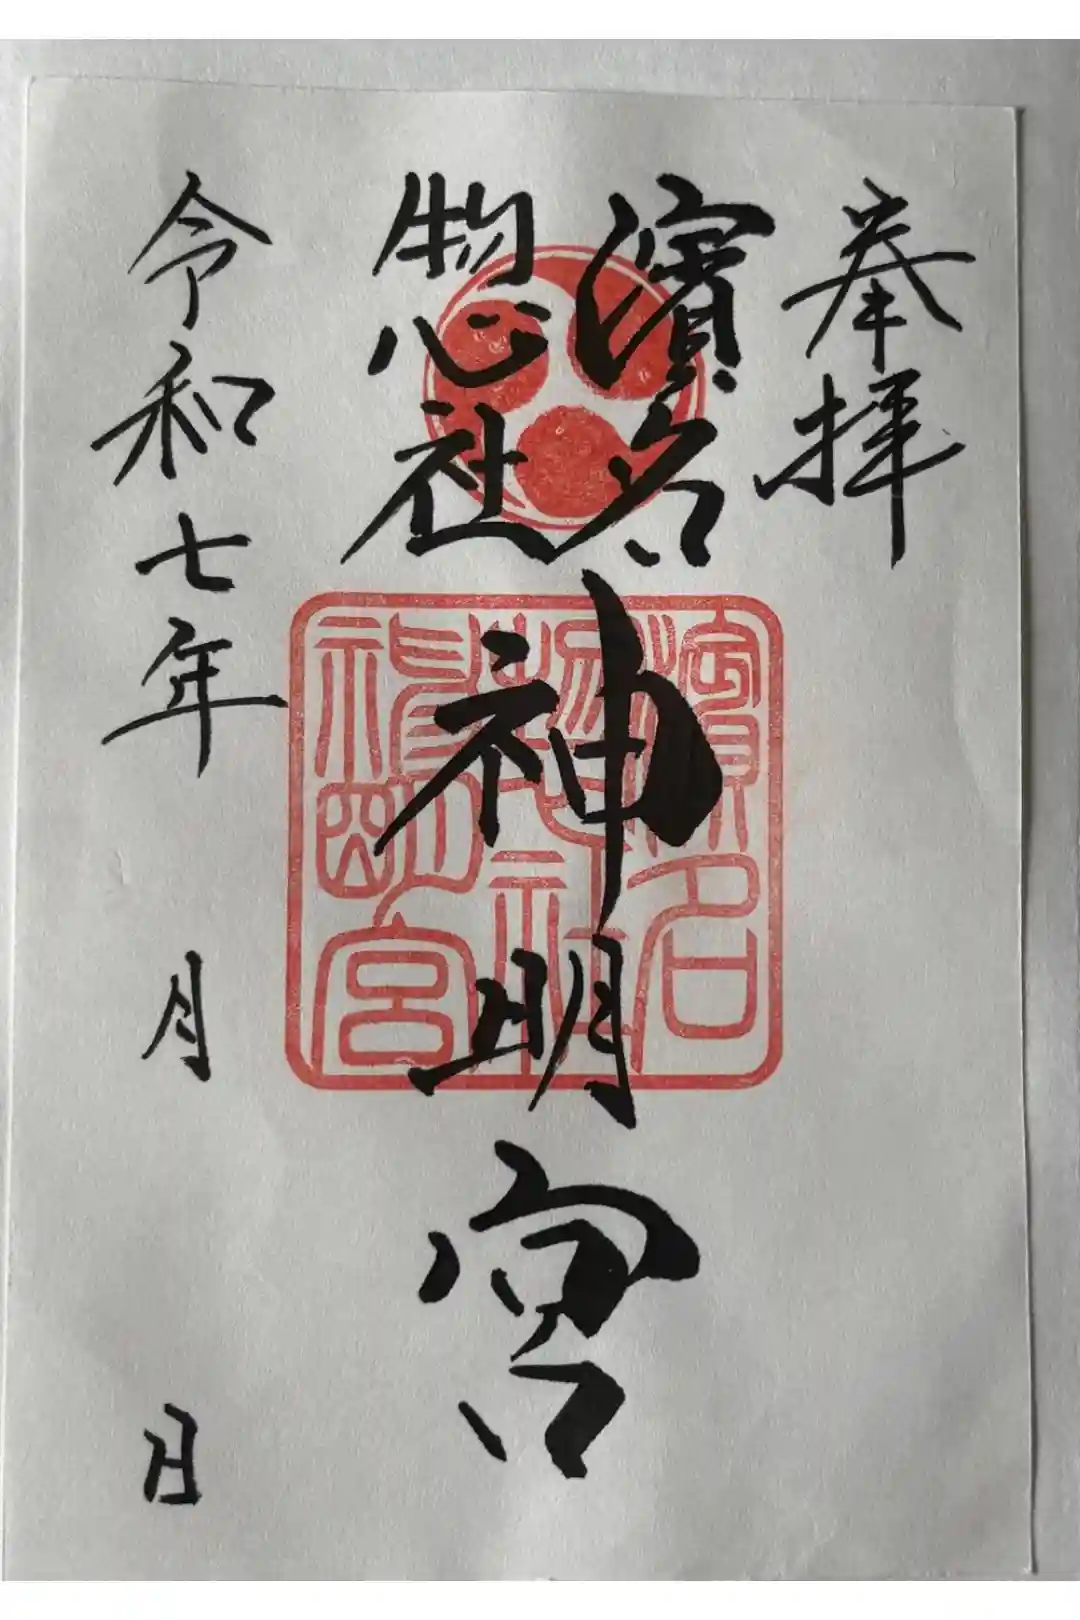 奉拝
濱名
惣社
神明宮
令和七年 月 日
濱名
惣社
神明宮